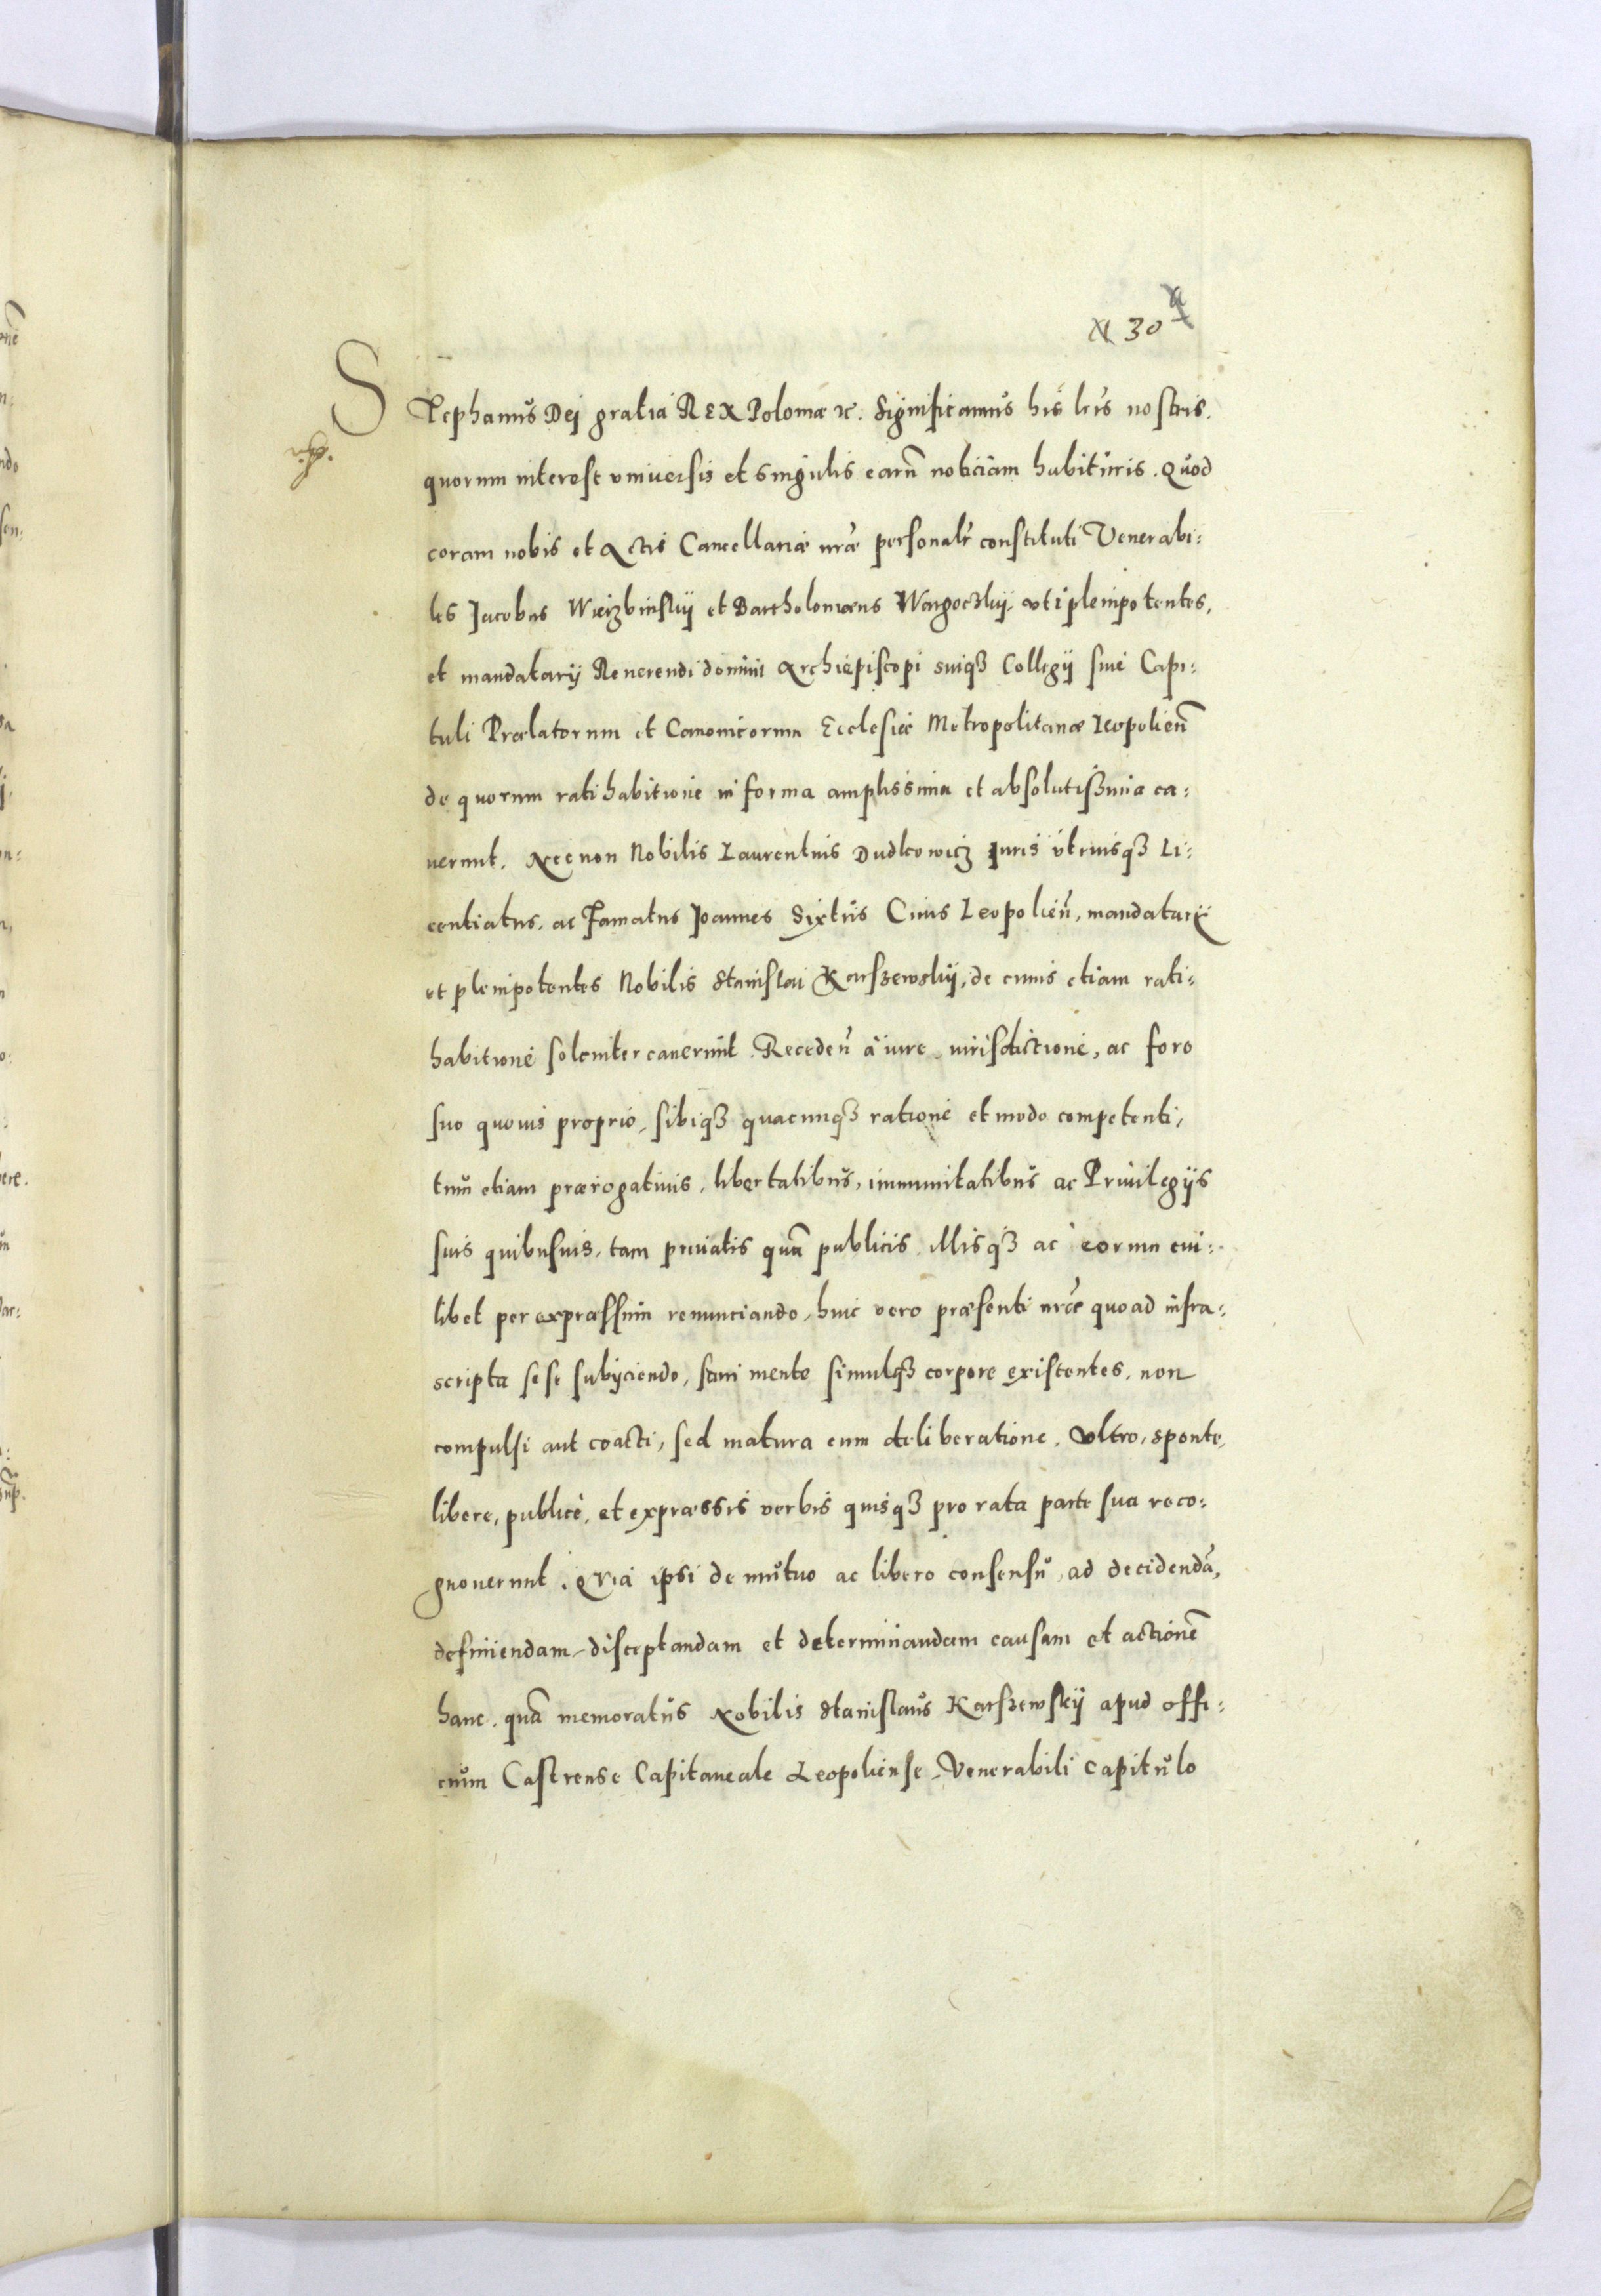 30
STephanus Dej gratia REX Poloniæ &c. Significamus his lrīs nostris.
quorum interest vniuersis et singulis earū noticiam habituris. Quod
coram nobis et Actis Cancellariæ nrāe personalr̄ constituti Venerabi:
les Jacobus Wierzbinskij et Bartholomæus Wargoczkij, vti plenipotentes,
et mandatarij Reuerendi domini Archiepiscopi suiqȝ Collegij siue Capi:
tuli Prælatorum et Canonicorum Ecclesiæ Metropolitanæ Leopolien̄
de quorum ratihabitione in forma amplissima et absolutissima ca:
uerunt. Necnon Nobilis Laurentius Dudkowicz Iuris vtriusqȝ Li:
centiatus, ac Famatus Joannes Sixtus Ciuis Leopolien̄, mandatarij
et plenipotentes Nobilis Stanislai Karszewskij, de cuius etiam rati:
habitione solemniter cauerunt. Receden̄ à iure, iurisdictione, ac foro
suo quouis proprio, sibiqȝ quacunqȝ ratione et modo competenti,
tum etiam prærogatiuis, libertatibus, immunitatibus ac Priuilegijs
suis quibusuis, tam priuatis quā publicis, illisqȝ ac eorum cui:
libet per expræssum renunciando, huic vero præsenti nrāe quoad infra:
scripta sese subijciendo, sani mente simulqȝ corpore existentes, non
compulsi aut coacti, sed matura cum deliberatione, vltro, sponte,
libere, publicè, et expræssis verbis quisqȝ pro rata parte sua reco:
gnouerunt. Quia ipsi de mutuo ac libero consensu, ad decidendā,
definiendam, disceptandam et determinandam causam et actionē
hanc, quā memoratus Nobilis Stanislaus Karszewskij apud offi:
cium Castrense Capitaneale Leopoliense, Venerabili Capitulo